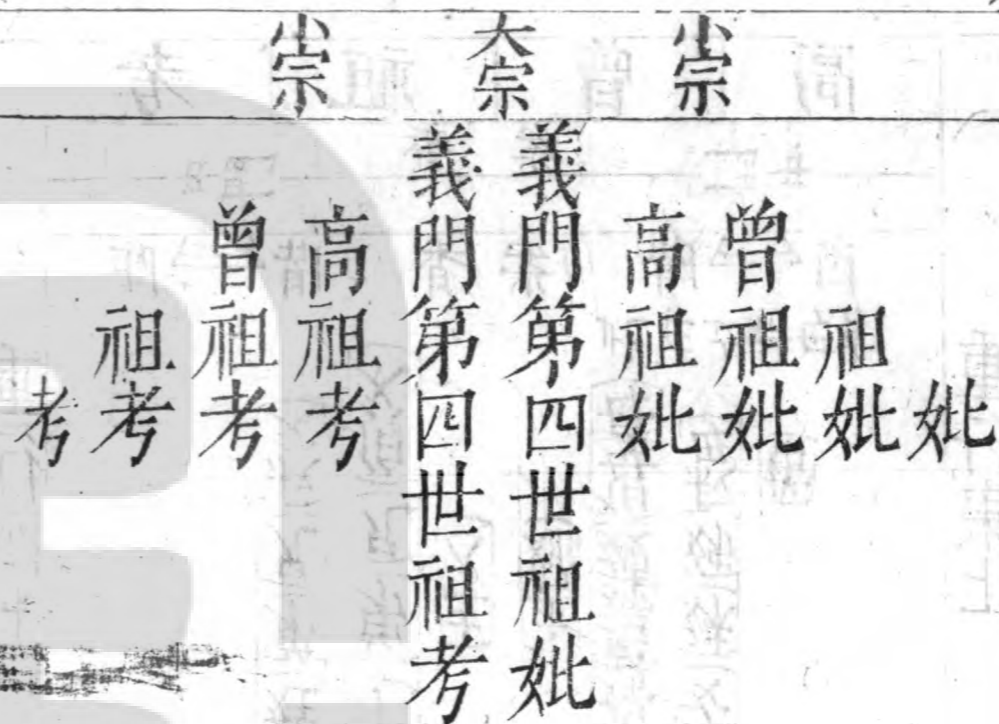 小宗
大宗
小宗
妣
祖妣
曾祖妣
高祖妣
義門第四世祖妣
義門第四世祖考
高祖考
曾祖考
祖考
考